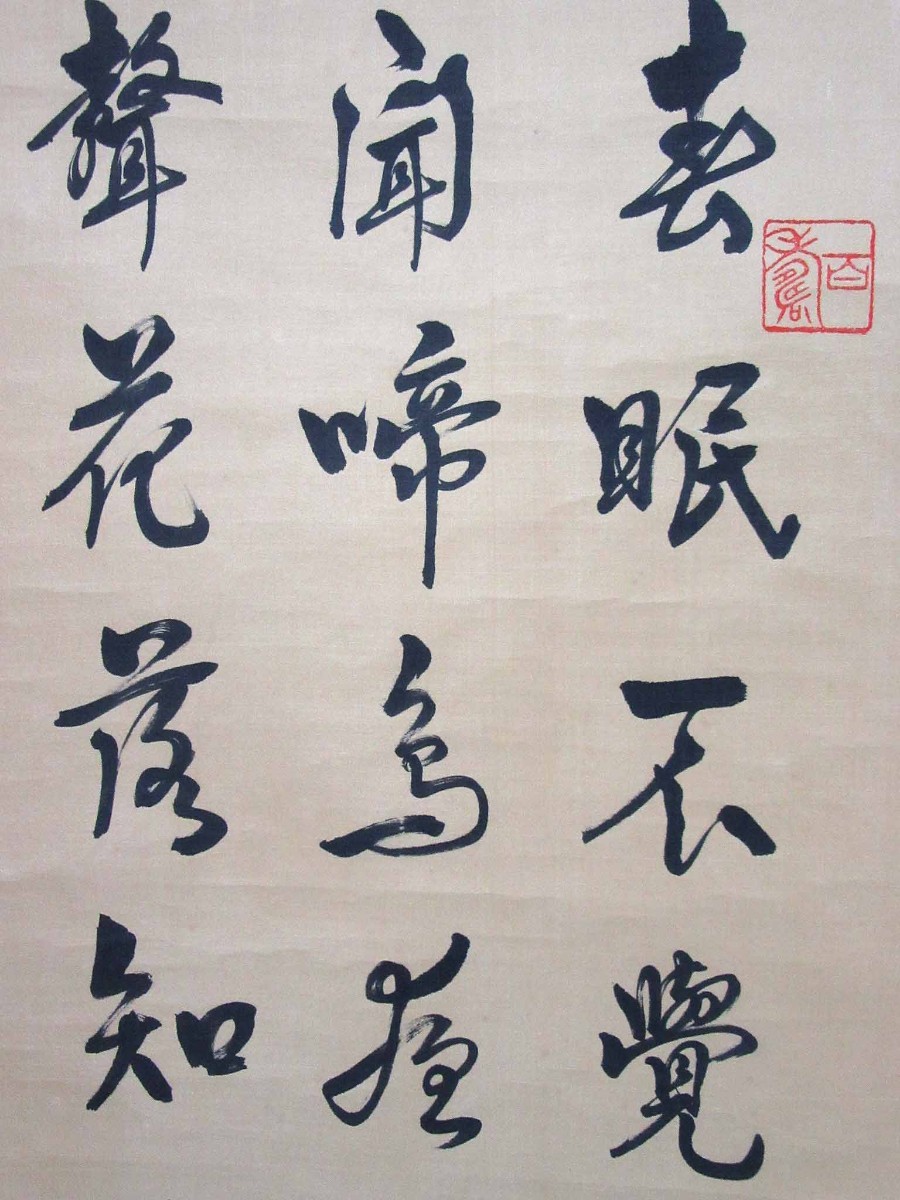 春眠不覺
聞啼鳥夜
聲花落知